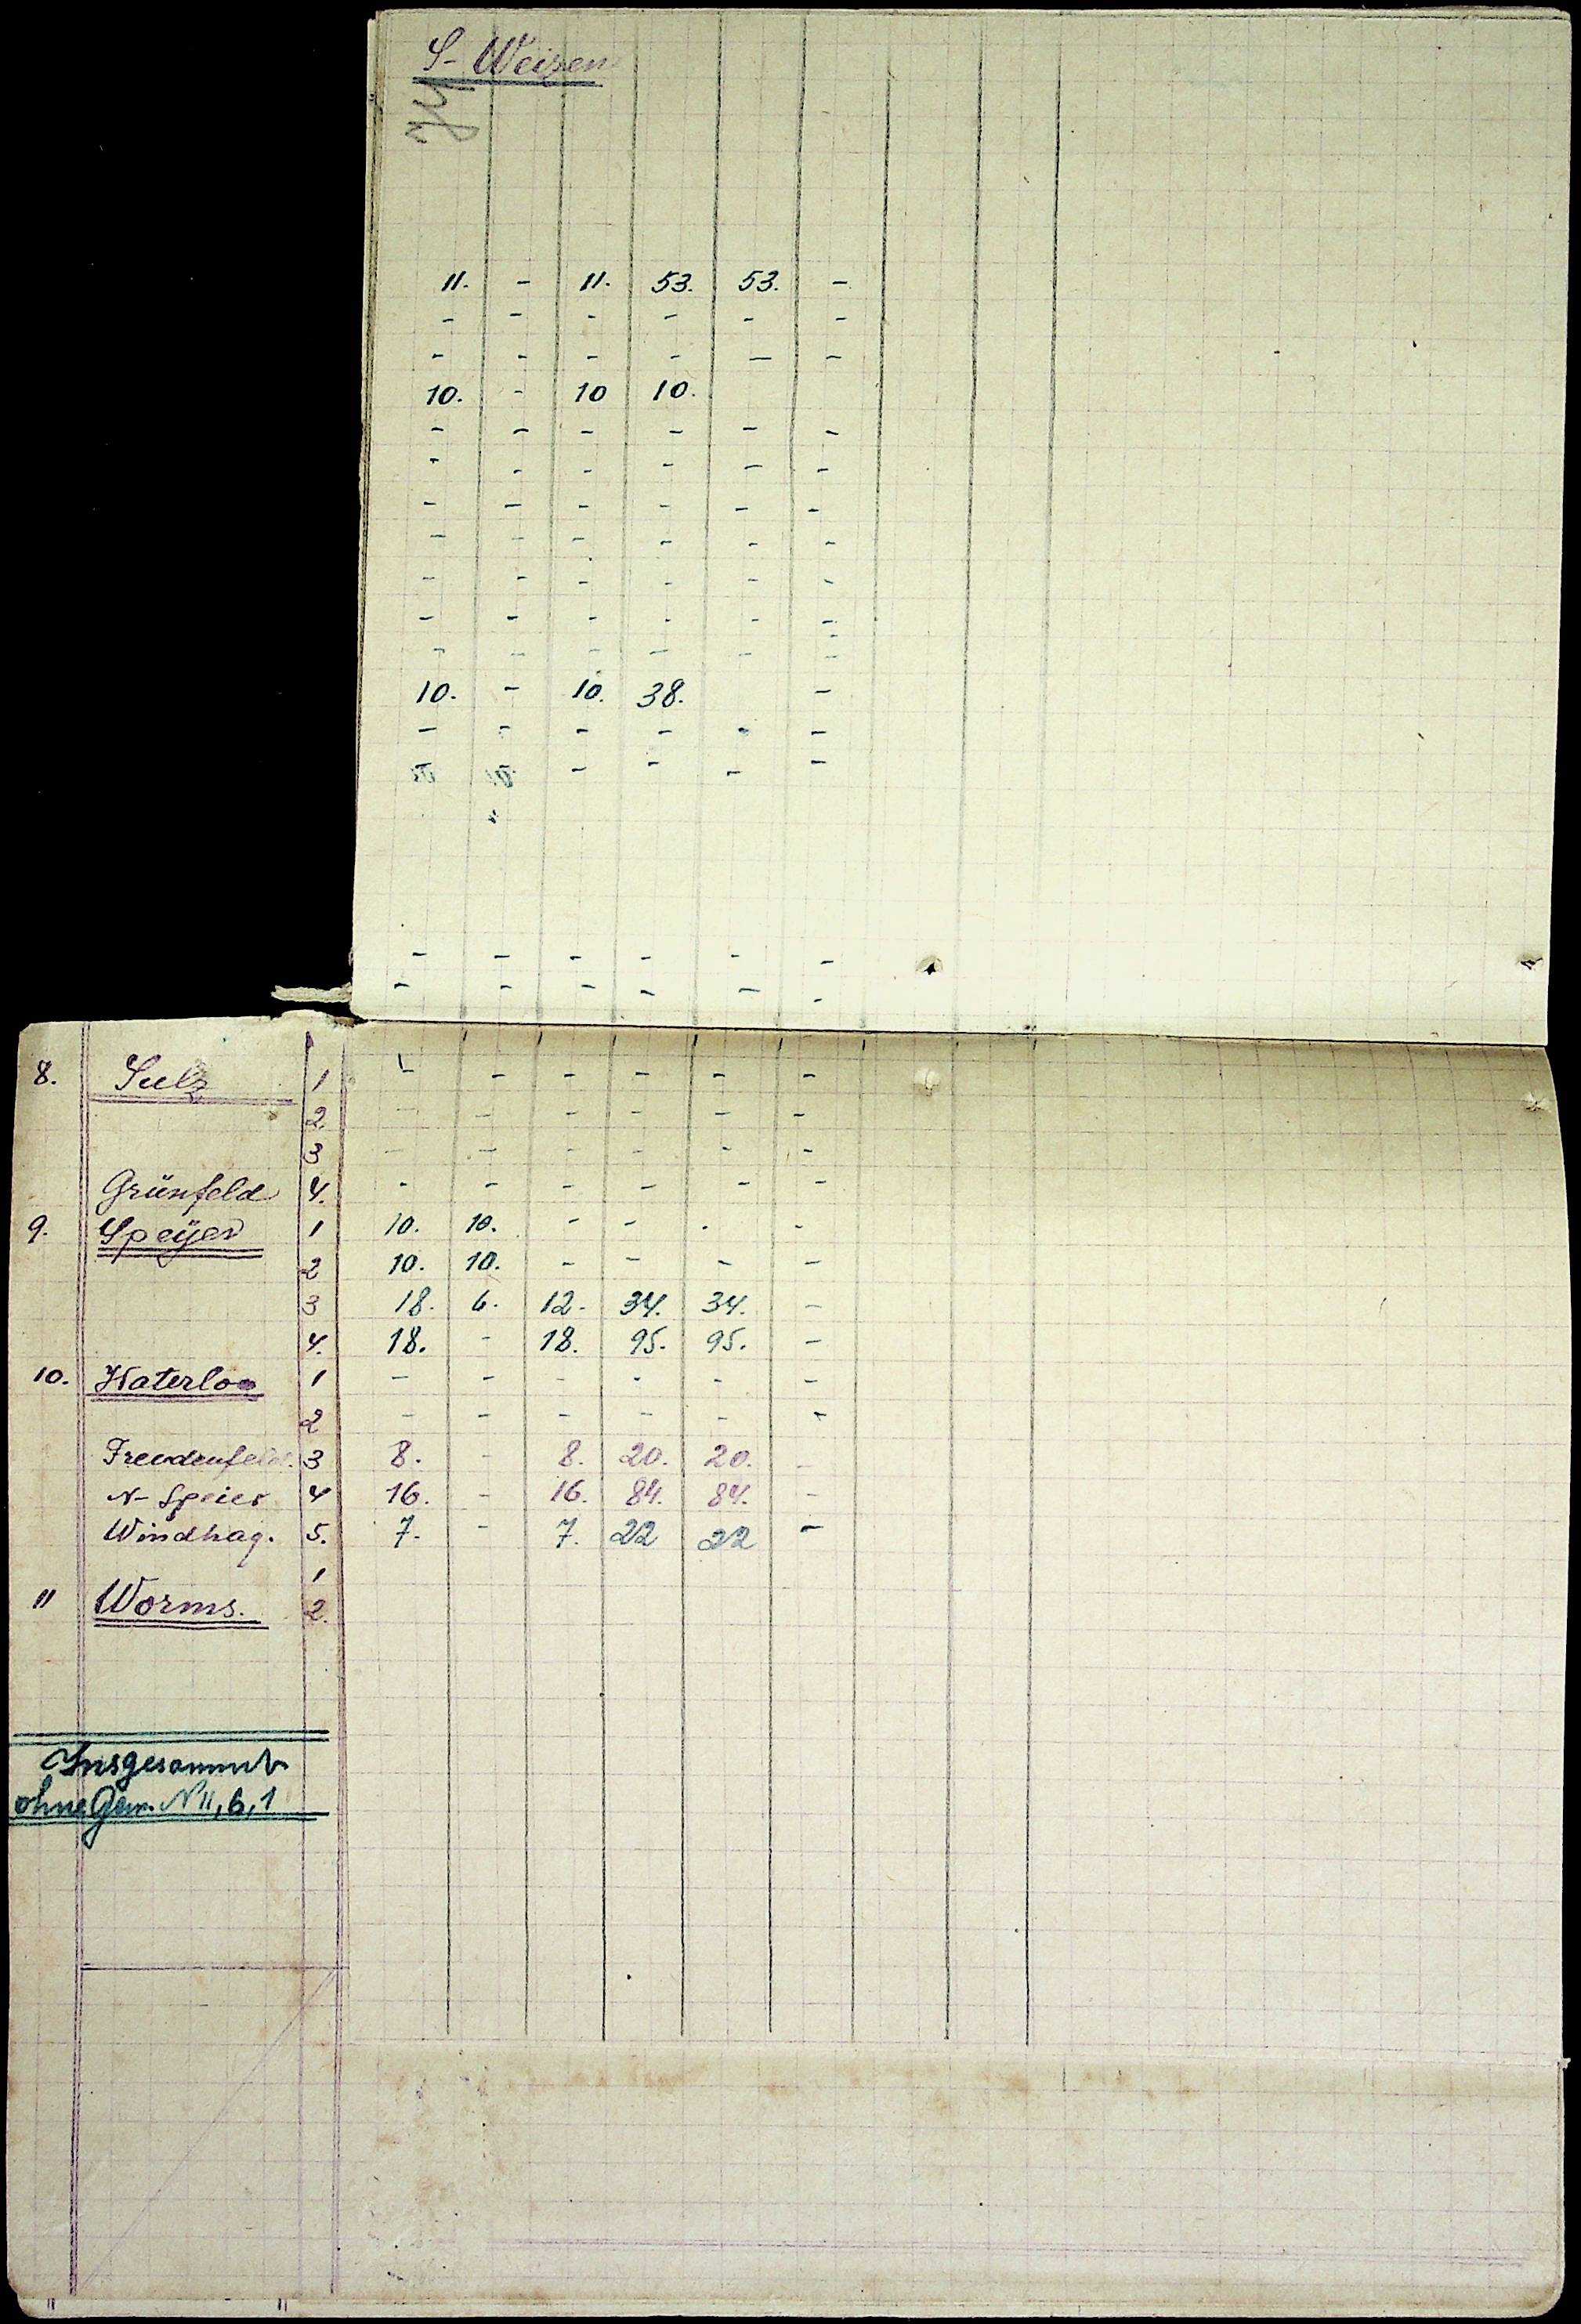 S-Weizen
11. - 11. 53. 53. -
- - - - - -
- - - - - -
10. - 10 10.
- - - - - -
- - - - - -
- - - - - -
- - - - - -
- - - - - -
- - - - - -
- - - - - -
10. - 10. 38. -
- - - - - -
- - - -
- - - - - -
- - - - - -
8. Sulz 1 - - - - - -
2 - - - - - -
3 - - - - - -
Grünfeld 4. - - - - - -
9. Speÿer 1 10. 10. - - - -
2 10. 10. - - - -
3 18. 6. 12. 34. 34. -
4. 18. - 18. 95. 95. -
10. Waterloo 1 - - - - - -
2 - - - - - -
Freudenfeld. 3 8. - 8. 20. 20. -
N-Speier 4 16. - 16. 84. 84. -
Windhag. 5. 7. - 7. 22 22 -
1
11 Worms. 2.
Insgesammt
ohne Gem. N 11, 6, 1